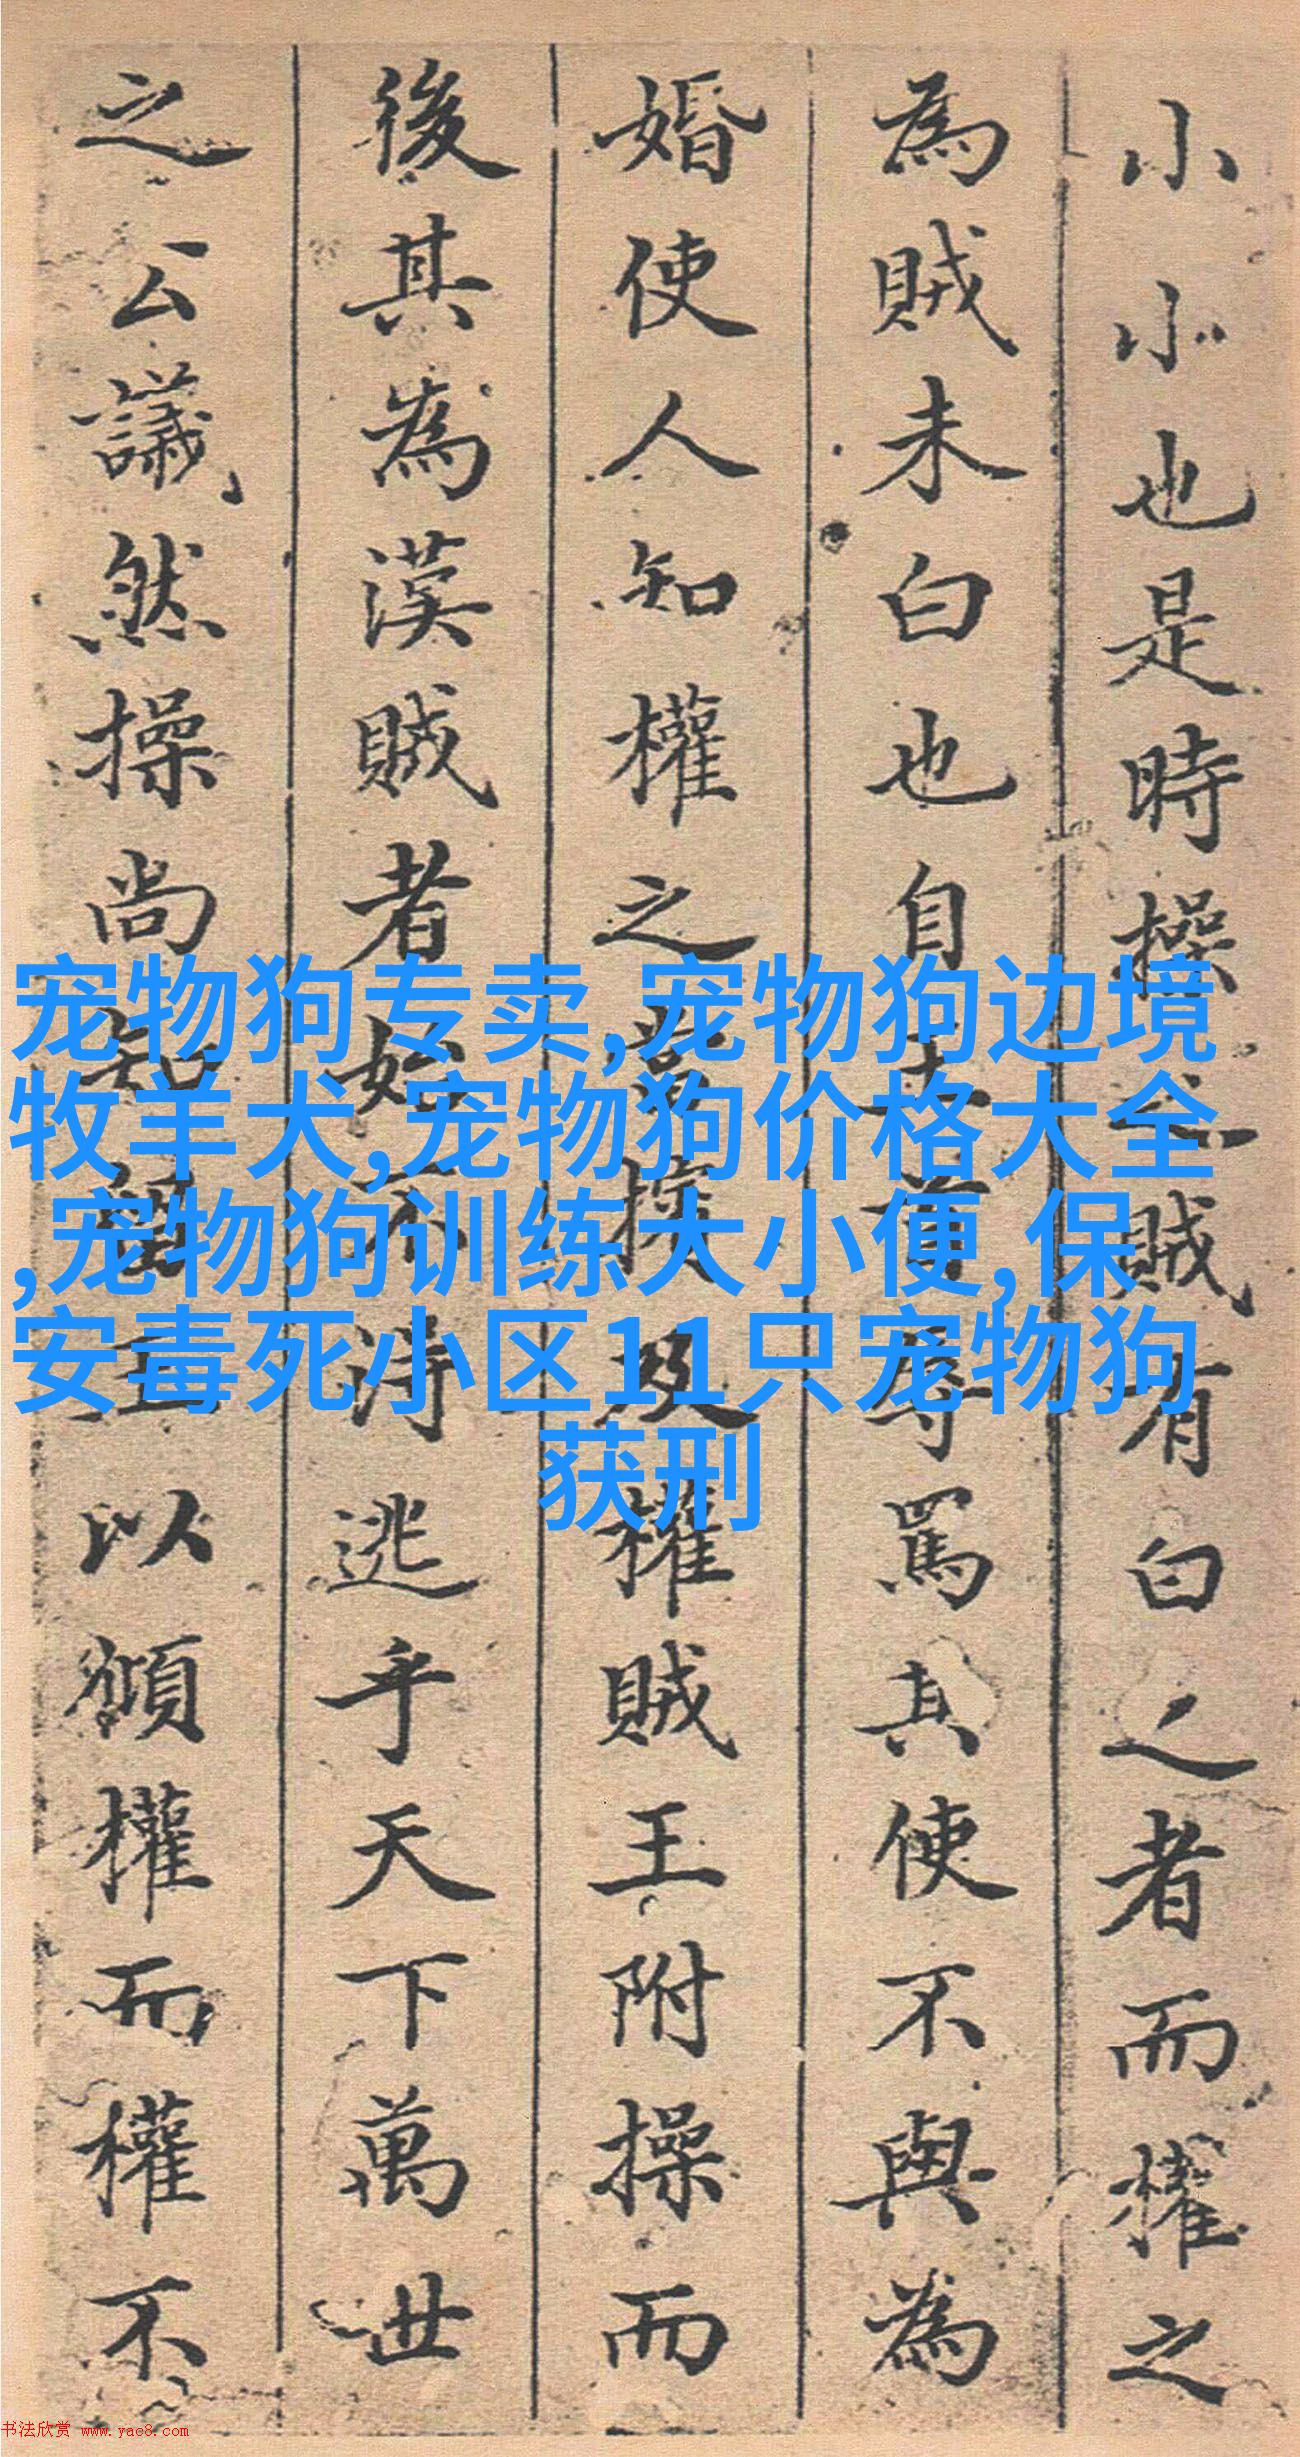 小小也是時操賊有白之者而權之
為賊未白也自罵其使不與為
婚使人知權之權賊王附操而
後其為漢賊者始不得逃乎天下萬世
之公議然操尚知以權而權不
宠物狗专卖,宠物狗边境
牧羊犬,宠物狗价格大全
,宠物狗训练大小便,保
安毒死小区11只宠物狗
获刑
书法欣赏 www.yac8.com